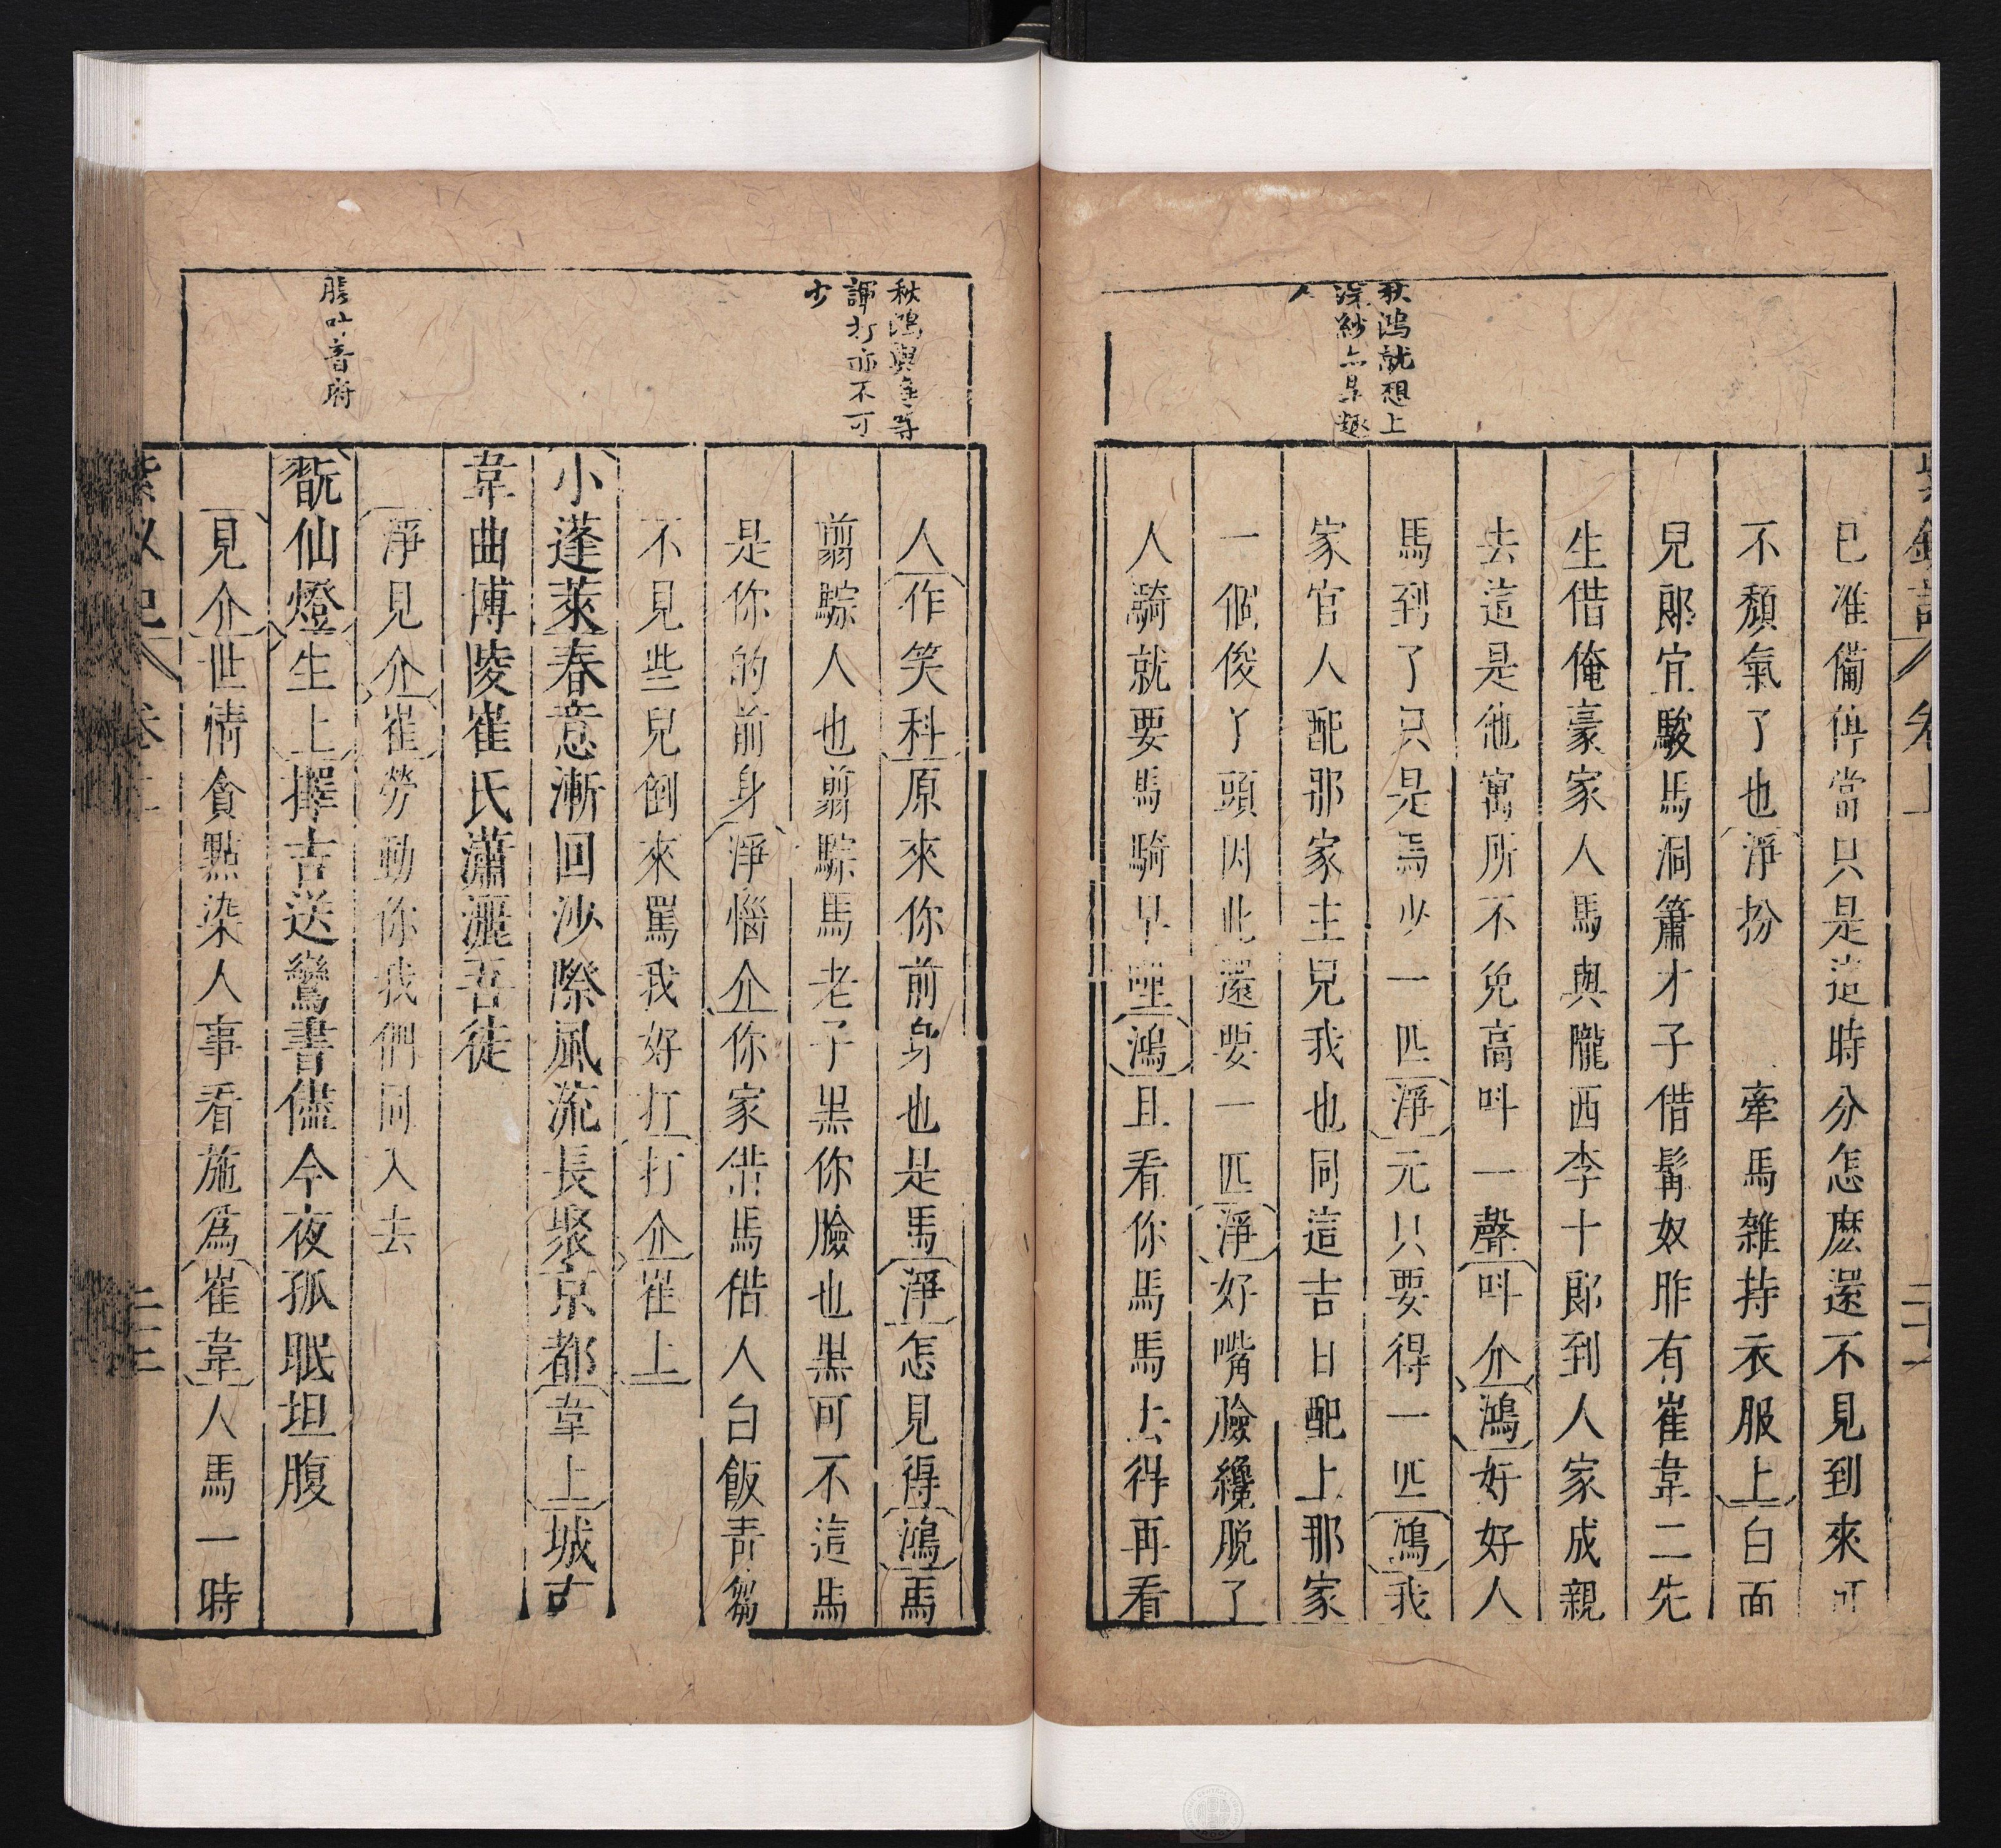 秋鴻就想上
浣紗亦是趣
人
已准備停當只是這時分怎麽還不見到來可
不頹氣了也淨扮　牽馬雜持衣服上白面
兒郎宜駿馬洞簫才子借髯奴昨有崔韋二先
生借俺豪家人馬與隴西李十郎到人家成親
去這是他寓所不免高呌一聲呌介鴻好好人
馬到了只是焉少一匹淨元只要得一匹鴻我
家官人配那家主兒我也同這吉日配上那家
一個俊丫頭因此還要一匹淨好嘴臉纔脱了
人騎就要馬騎早哩鴻且看你馬馬去得再看
秋鴻與淨等
諢打亦不可
少
人作笑科原來你前身也是馬淨怎見得鴻馬
翦騣人也翦騣馬老子黒你臉也黒可不這馬
是你的前身淨惱介你家借馬借人白飯青芻
不見些兒倒來罵我好打打介崔上
小蓬萊春意漸回沙際風流長聚京都韋上城古
韋曲博陵崔氏瀟灑吾徒
淨見介崔勞動你我們同入去
翫仙燈生上擇吉送鸞書儘今夜孤眠坦腹
見介世情貪點染人事看施爲崔韋人馬一時
卷上
二十三